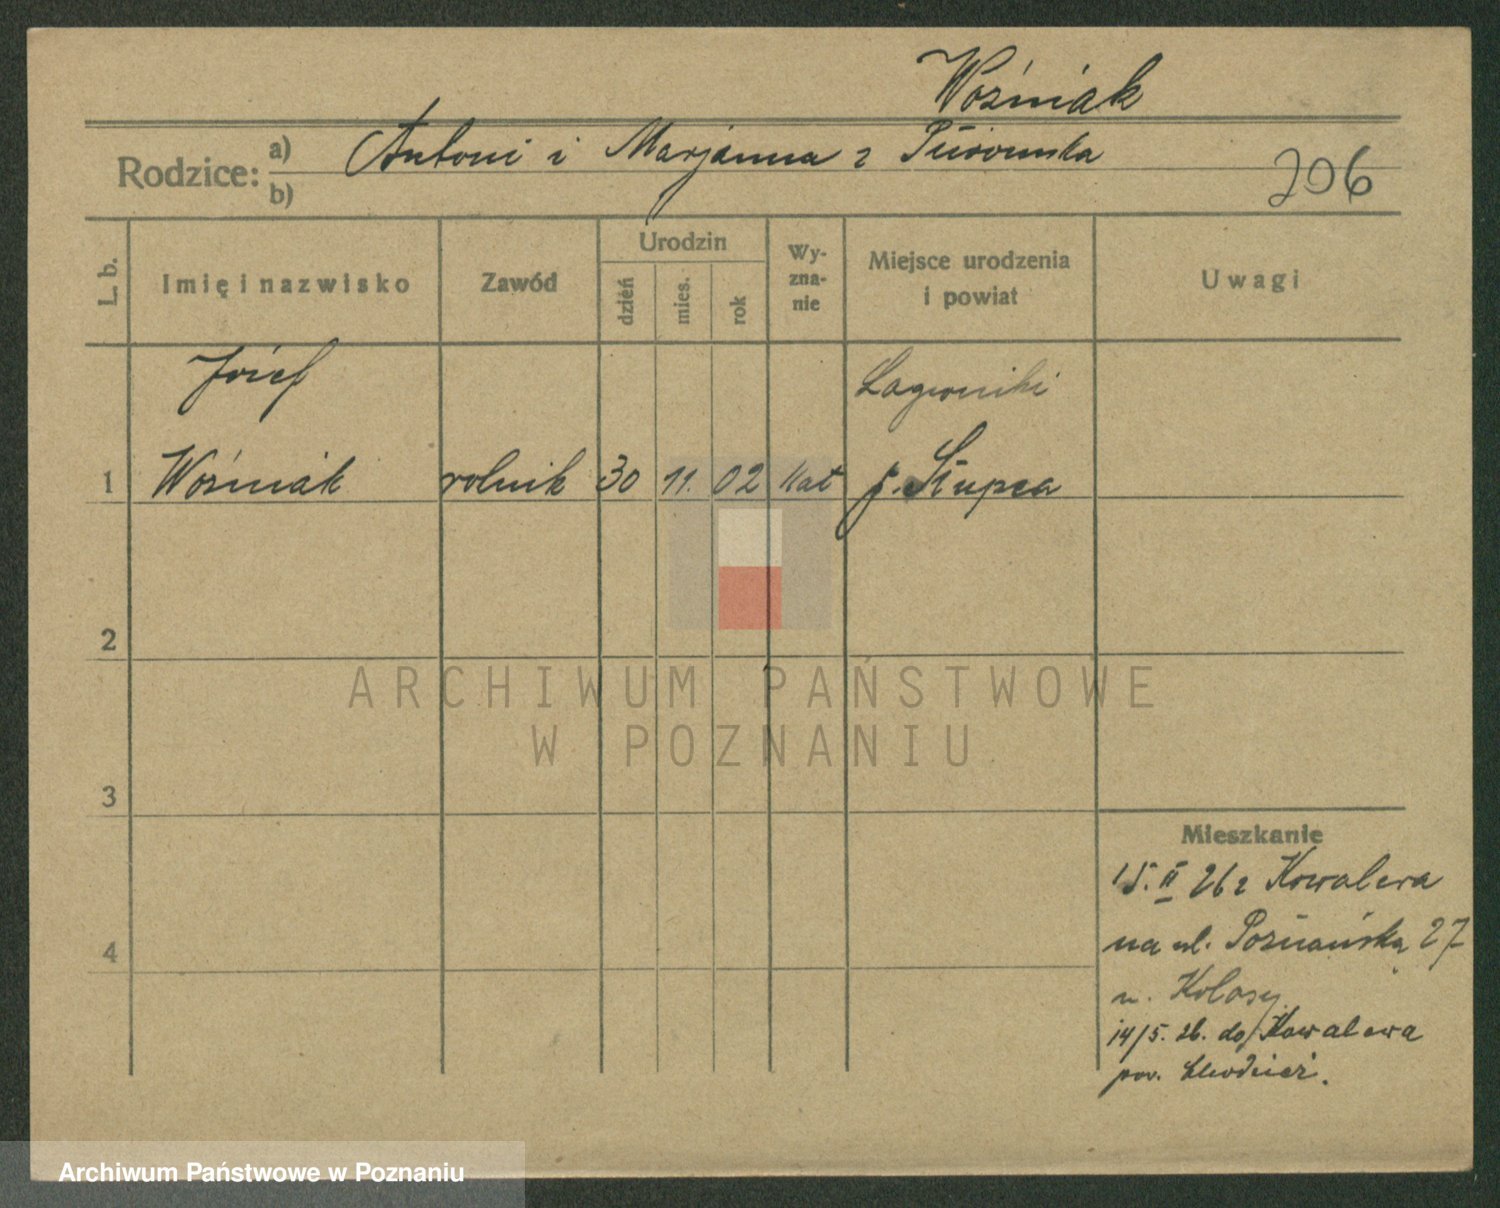 Woźniak
Rodzice: a) Antoni i Marjanna z
b)
206
L. b.
Imię i nazwisko
Zawód
Urodzin
dzień
mies.
rok
Wy-
zna-
nie
Miejsce urodzenia
i powiat
Uwagi
Józef
Łagiewniki
1 Woźniak rolnik 30 11. 02 kat p. Słupca
2
3
4
Mieszkanie
15. II 26 z Kowalewa
na ul. Poznańska 27
u. Kolasy
14/5. 26. do Kowalewa
pow. Chodzież.
ARCHIWUM PAŃSTWOWE
W POZNANIU
Archiwum Państwowe w Poznaniu